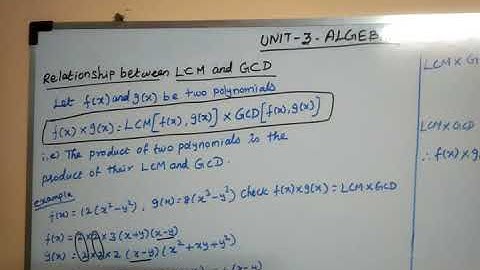 UNIT-3-ALGEB
Relationship between LCM and GCD
Let f(x) and g(x) be two polynomials
f(x) × g(x) = LCM[f(x), g(x)] × GCD[f(x), g(x)]
i.e) The product of two polynomials is the
product of their LCM and GCD.
example
f(x) = 12(x²-y²), g(x) = 8(x³-y³) check f(x)×g(x) = LCM×GCD
f(x) = 2×2×3(x+y)(x-y)
g(x) = 2×2×2(x-y)(x²+xy+y²)
LCM×G
LCM×GCD
∴ f(x)×g